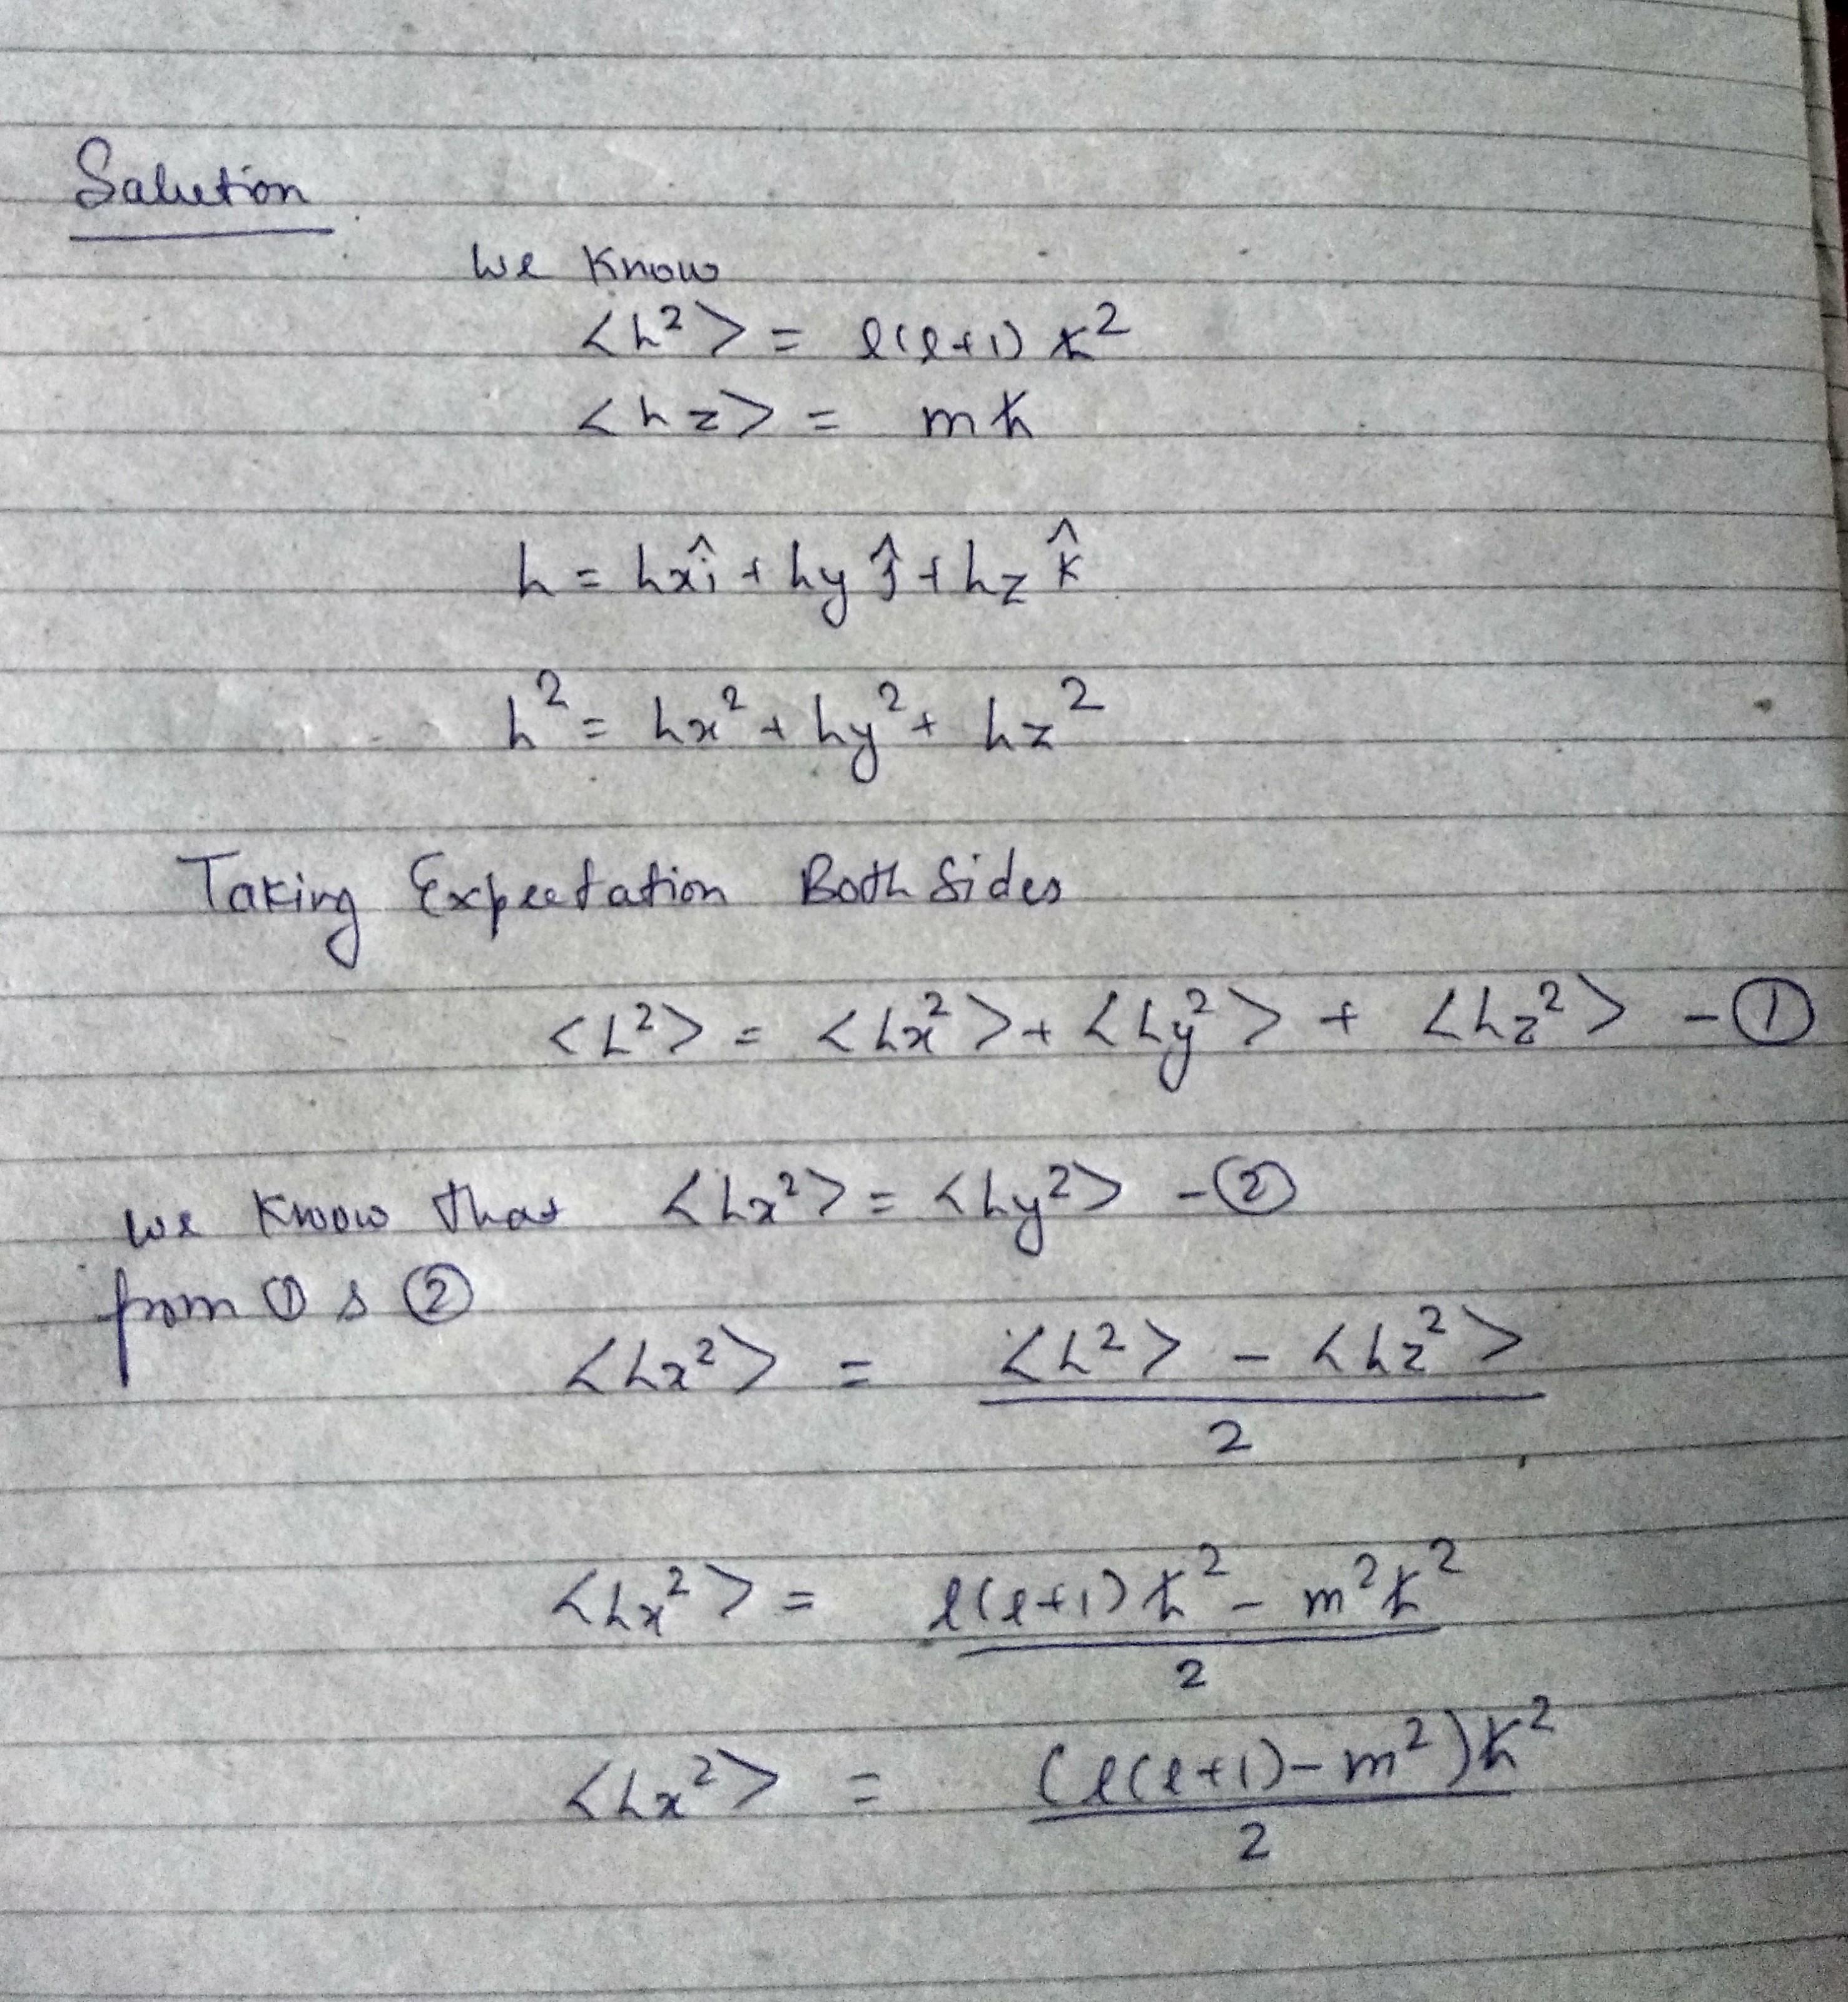 Solution
We Know
<L²> = l(l+1) ħ²
<Lz> = mħ
L = Lxî + Ly ĵ + Lz k̂
L² = Lx² + Ly² + Lz²
Taking Expectation Both Sides
<L²> = <Lx²> + <Ly²> + <Lz²> - ①
we Know that <Lx²> = <Ly²> - ②
from ① & ②
<Lx²> = <L²> - <Lz²>
2
<Lx²> = l(l+1) ħ² - m²ħ²
2
<Lx²> = (l(l+1) - m²)ħ²
2